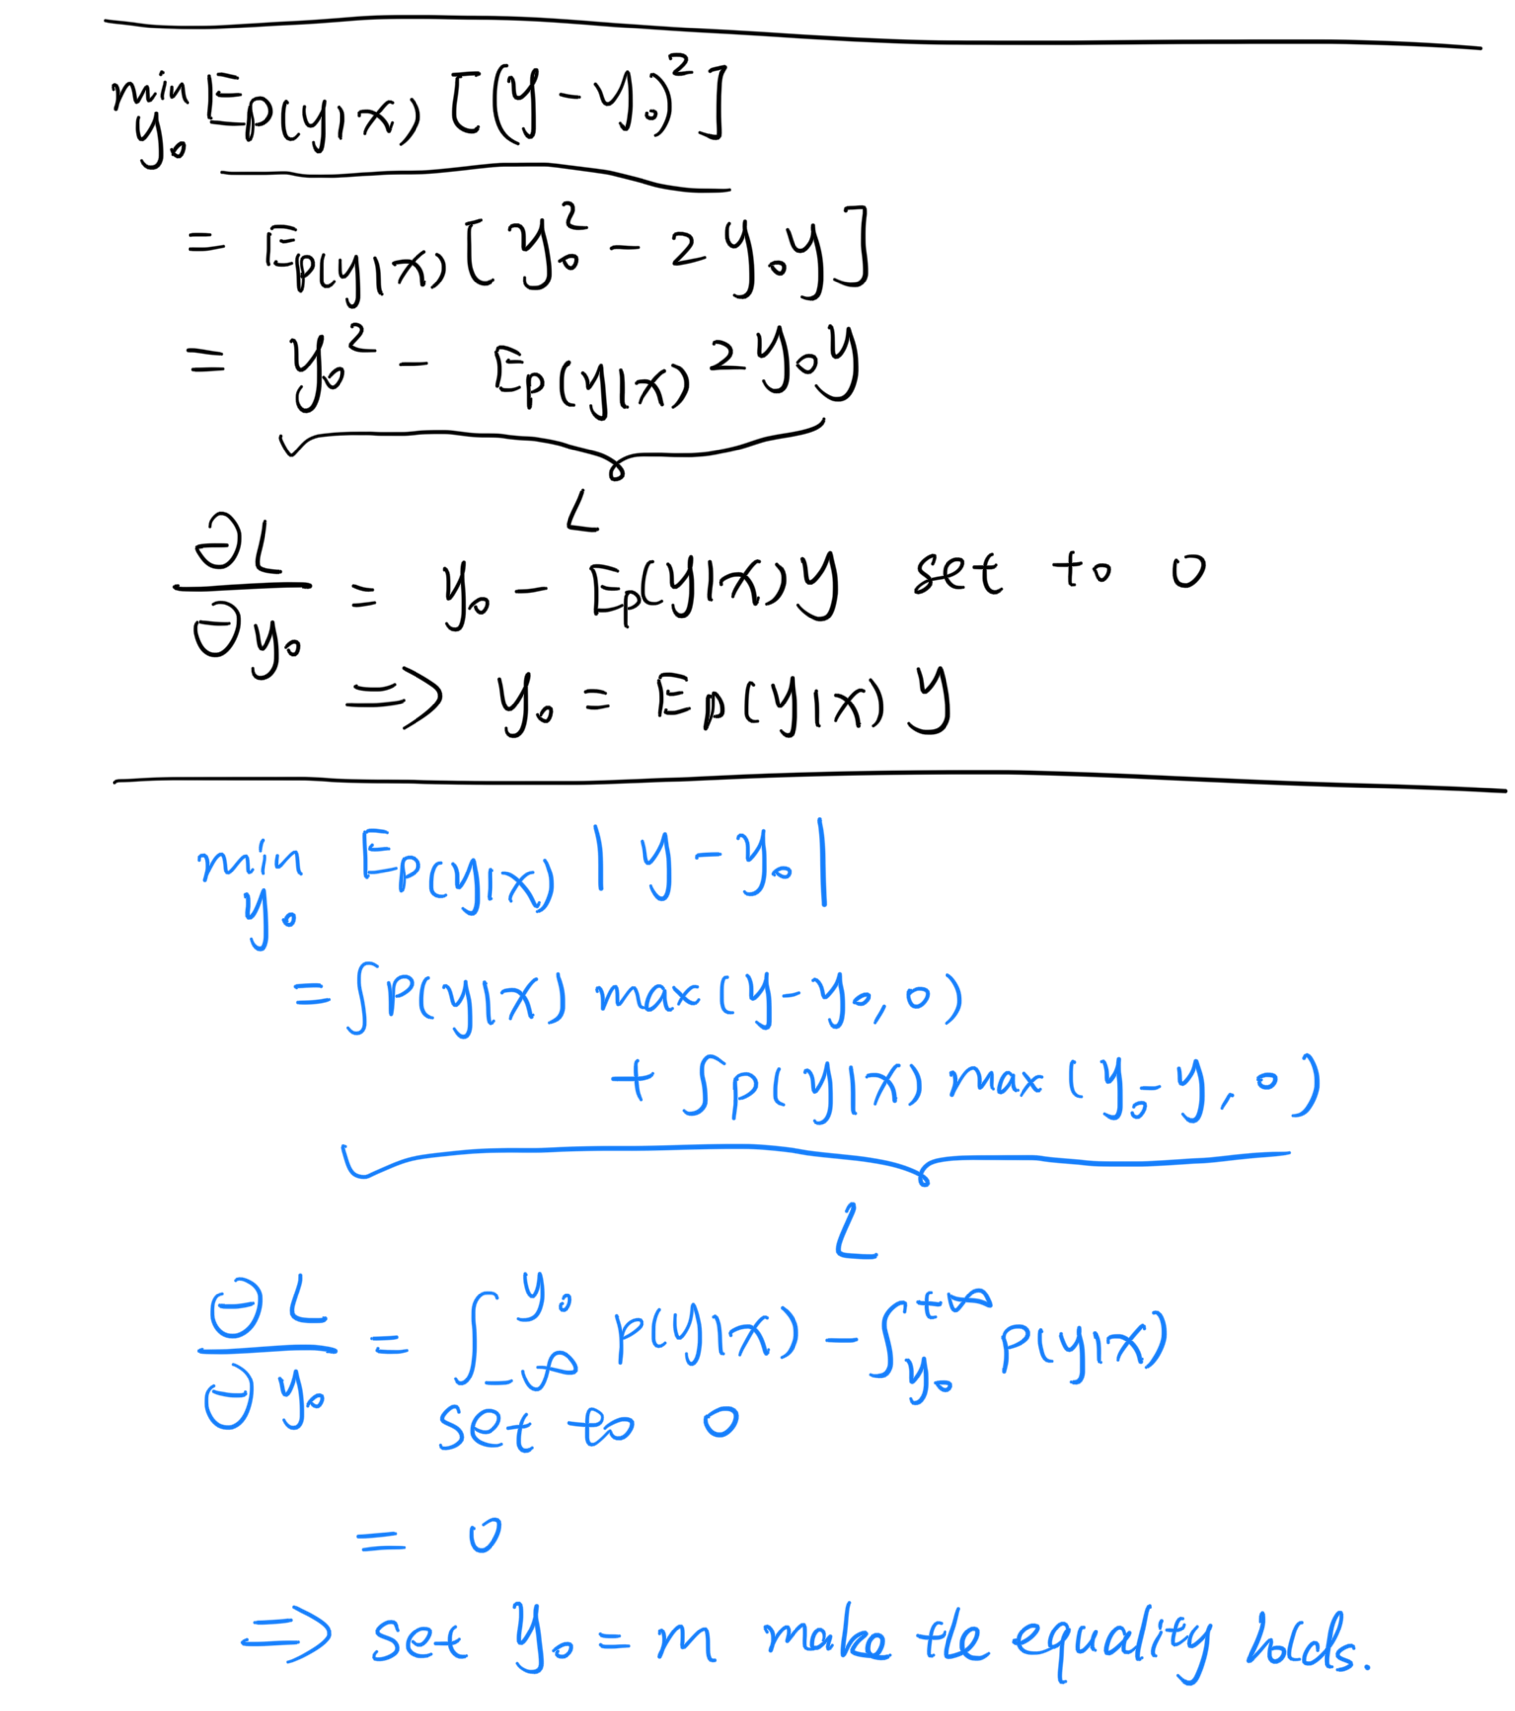 min_{y_0} E_{P(y|x)} [(y - y_0)^2]
= E_{P(y|x)} [y_0^2 - 2 y_0 y]
= y_0^2 - E_{P(y|x)} 2 y_0 y
L
∂L/∂y_0 = y_0 - E_{P(y|x)} y set to 0
=> y_0 = E_{P(y|x)} y
min_{y_0} E_{P(y|x)} |y - y_0|
= ∫ P(y|x) max(y - y_0, 0)
+ ∫ P(y|x) max(y_0 - y, 0)
L
∂L/∂y_0 = ∫_{-∞}^{y_0} P(y|x) - ∫_{y_0}^{+∞} P(y|x)
set to 0
= 0
=> set y_0 = m make the equality holds.